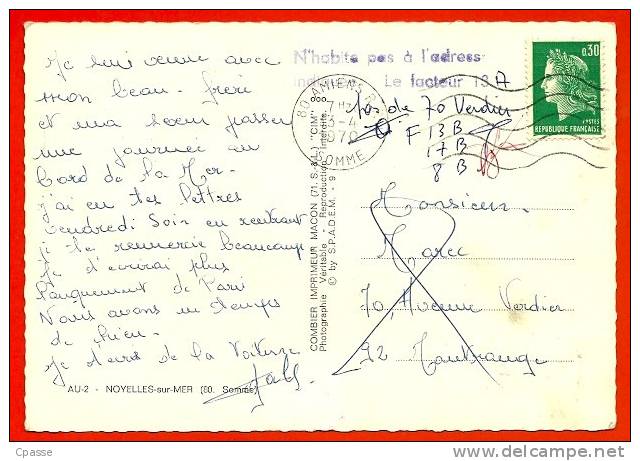 Je suis venue avec
mon beau-frère
et ma soeur passer
une journée au
bord de la Mer.
j'ai eu tes lettres
vendredi soir en rentrant
je te remercie beaucoup
je t'écrirai plus
longuement de Paris
Nous avons un temps
de chien.
Je t'écris de la voiture
AU-2 - NOYELLES-sur-MER (80. Somme)
COMBIER IMPRIMEUR MACON (71. S.-&-L.) "CIM"
Photographie Véritable - Reproduction interdite
© by S.P.A.D.E.M. - 9
N'habite pas à l'adresse
Le facteur 13 A
80 AMIENS
7H
-4
1970
SOMME
pas de 70 Verdier
F 13 B
17 B
8 B
0,30
POSTES
REPUBLIQUE FRANÇAISE
Monsieur
Marec
70, Avenue Verdier
92 Montrouge
Cpasse
delcampe.net